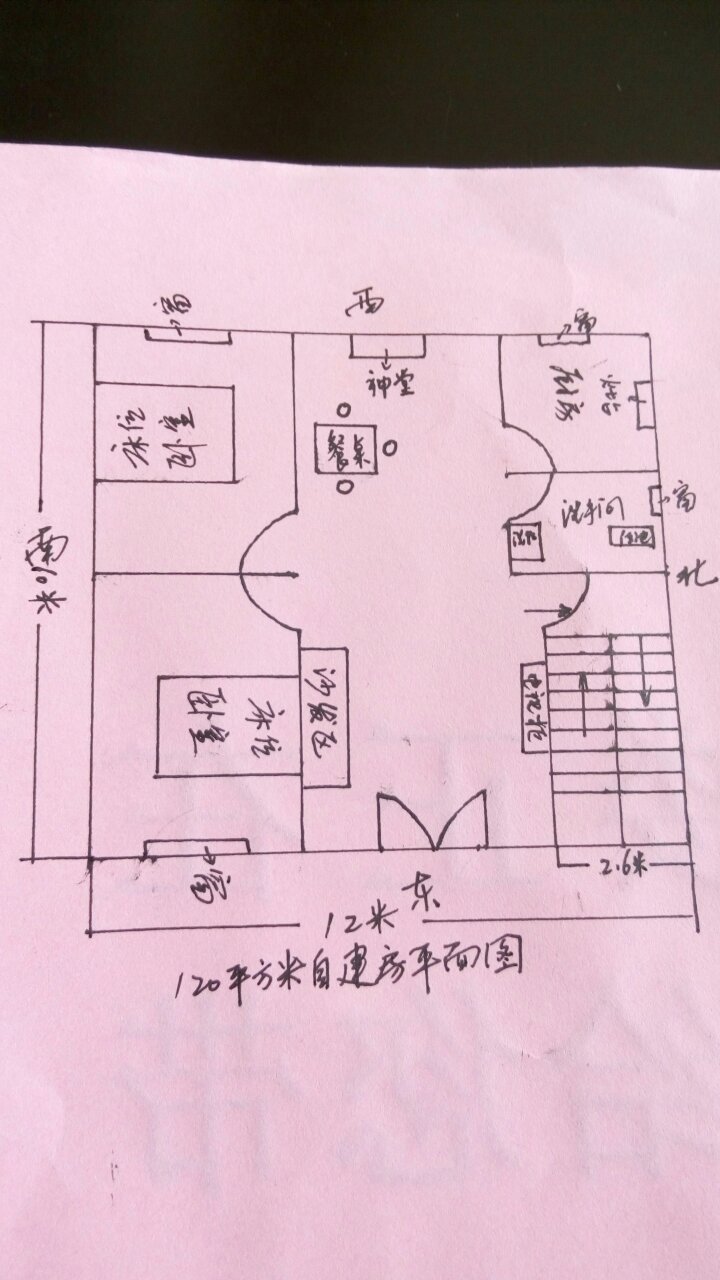 窗
西
窗
神堂
厨房
灶台
床位
卧室
餐桌
洗手间
窗
南
10米
北
沙发区
电视柜
卧室
床位
2.6米
窗
东
12米
120平方米自建房平面图